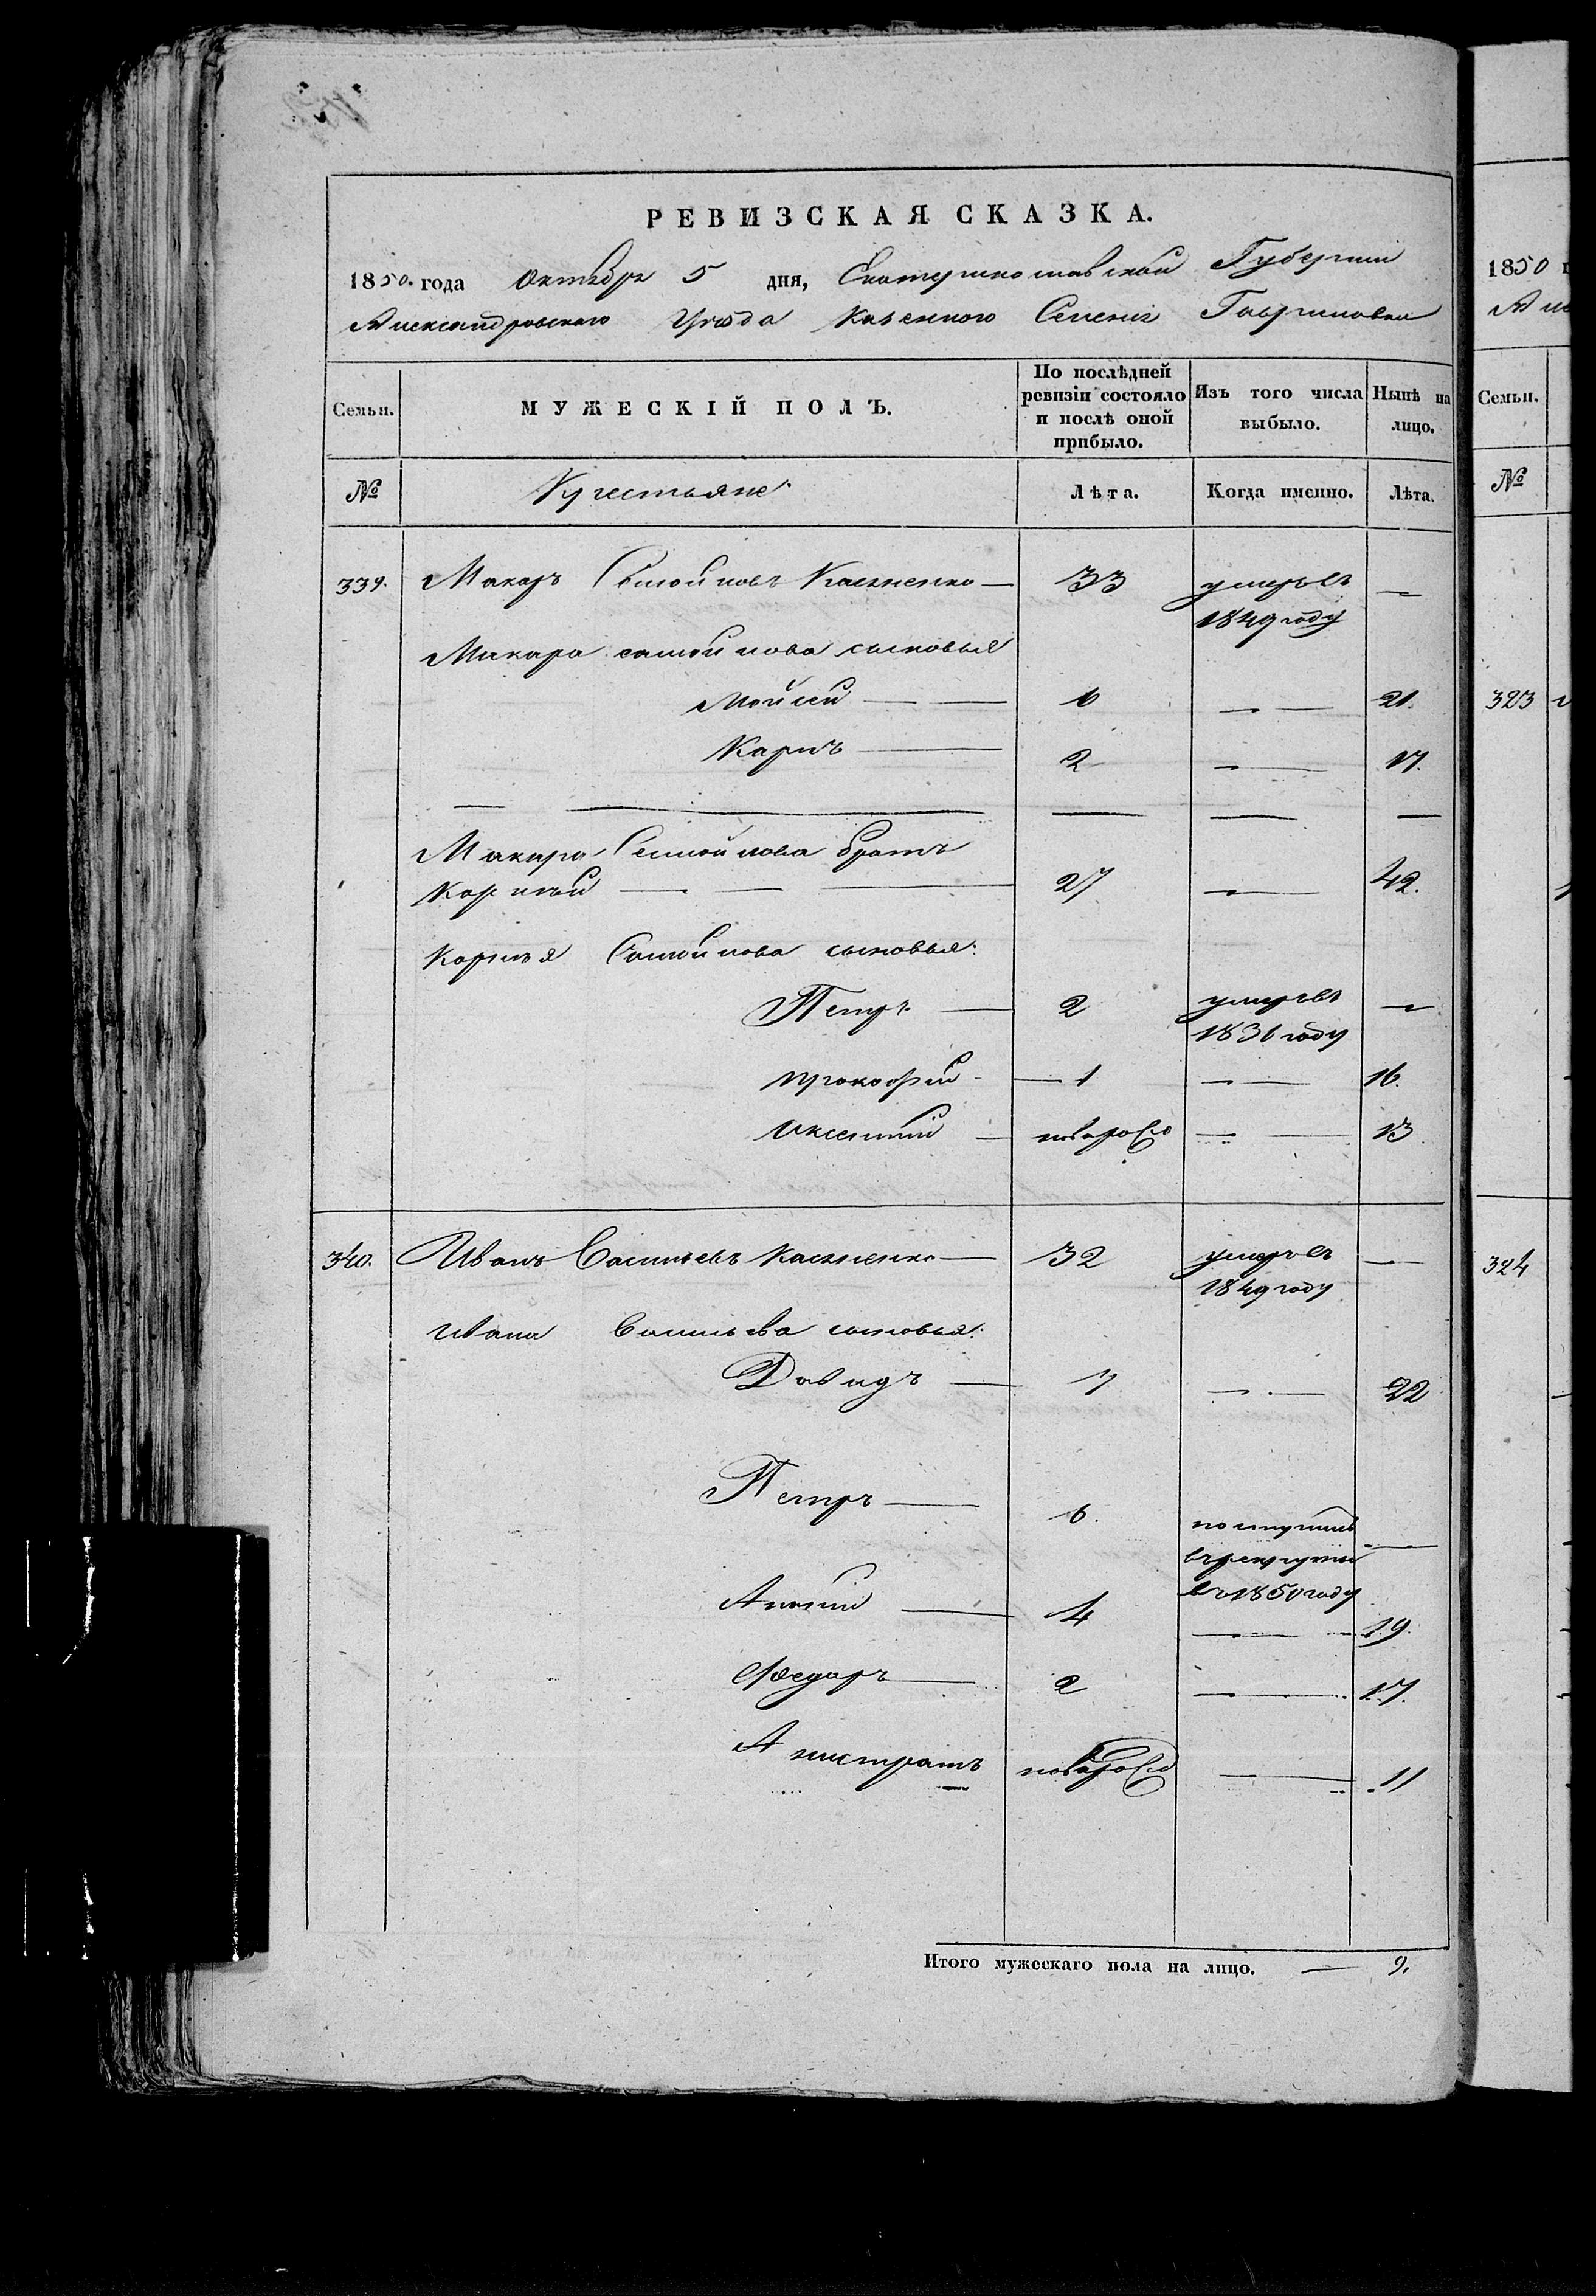 РЕВИЗСКАЯ СКАЗКА.
1850. года Октября 5 дня, Екатеринославской Губернии
Александровского Уѣзда Казенного Селенія Гавриловки
Семьи.
МУЖЕСКІЙ ПОЛЪ.
По послѣдней
ревизіи состояло
и послѣ оной
прибыло.
Изъ того числа
выбыло.
Нынѣ на
лицо.
№
Крестьяне
Лѣта.
Когда именно.
Лѣта.
339. Макаръ Самойловъ — 33 умеръ въ —
1849 году
Макара самойлова сыновья
Мойсей — — 6 — — 21.
Карпъ — 2 — — 17.
Макара Самойлова братъ
Корнѣй — — — 27 — — 42.
Корнѣя Самойлова сыновья:
Петръ — 2 умеръ въ —
1836 году
Прокофій — 1 — — 16.
Аксентій — новоро — — 13
340. Иванъ Васильевъ — 32 умеръ въ —
1849 году
Ивана Васильева сыновья:
Давидъ — 7 — — 22
Петръ — 6. поступилъ
въ рекруты —
въ 1850 году
4 — — 19.
Федоръ — 2 — 17.
новоро — 11
Итого мужескаго пола на лицо. — 9.
1850
Семьи.
№
323
324